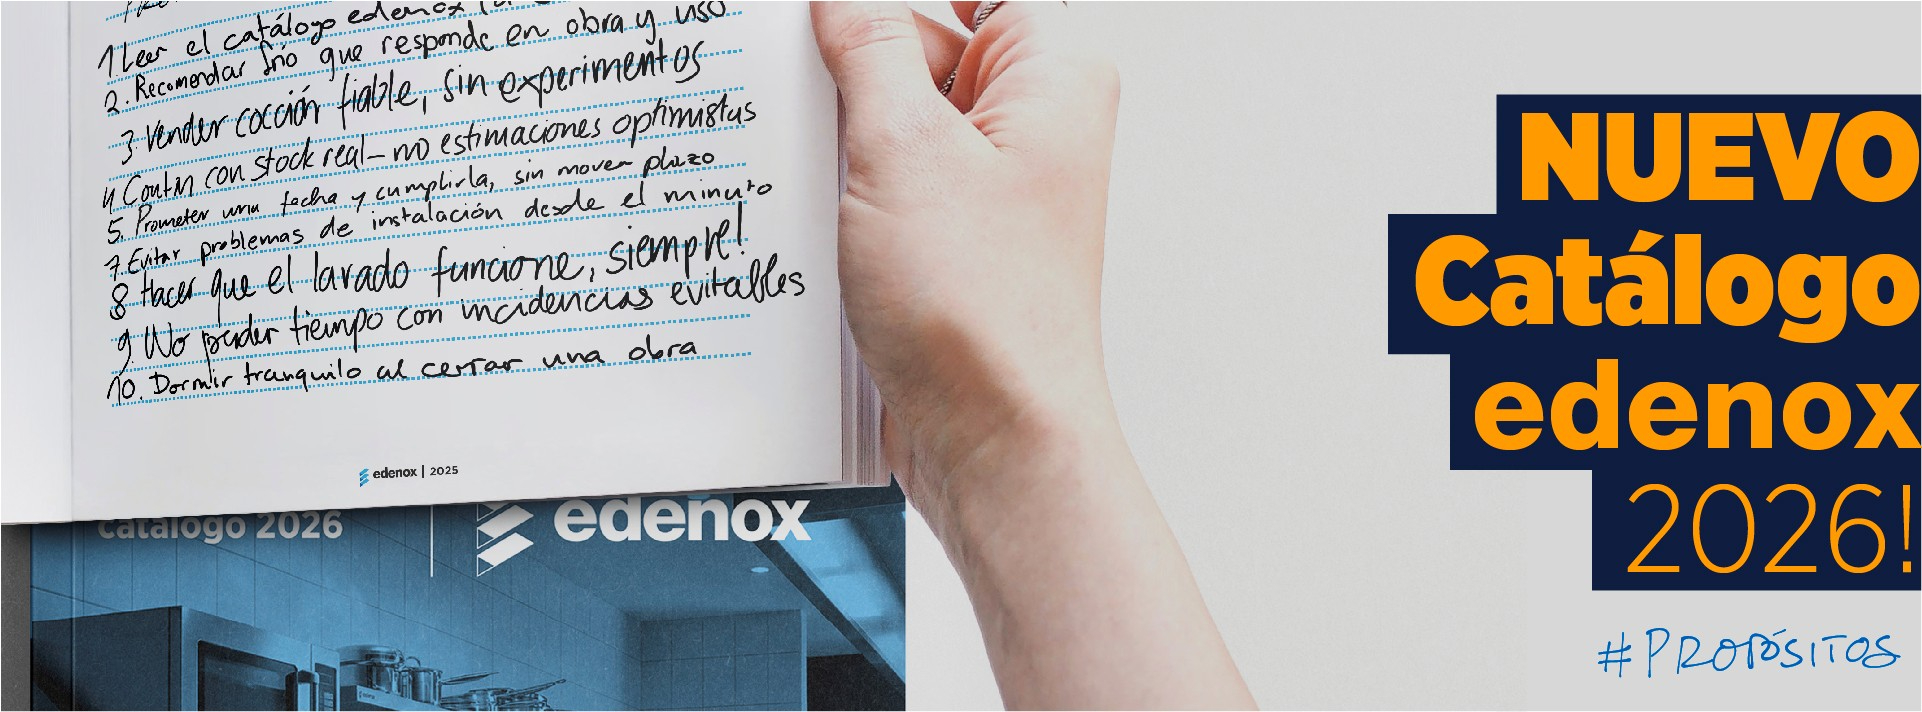 1. Leer el catálogo edenox
2. Recomendar frío que responde en obra y uso
3. Vender cocción fiable, sin experimentos
4 Contar con stock real - no estimaciones optimistas
5. Prometer una fecha y cumplirla, sin mover plazo
7. Evitar problemas de instalación desde el minuto
8 Hacer que el lavado funcione, siempre!
9. No perder tiempo con incidencias evitables
10. Dormir tranquilo al cerrar una obra
edenox | 2025
catálogo 2026
edenox
NUEVO
Catálogo
edenox
2026!
#PROPÓSITOS